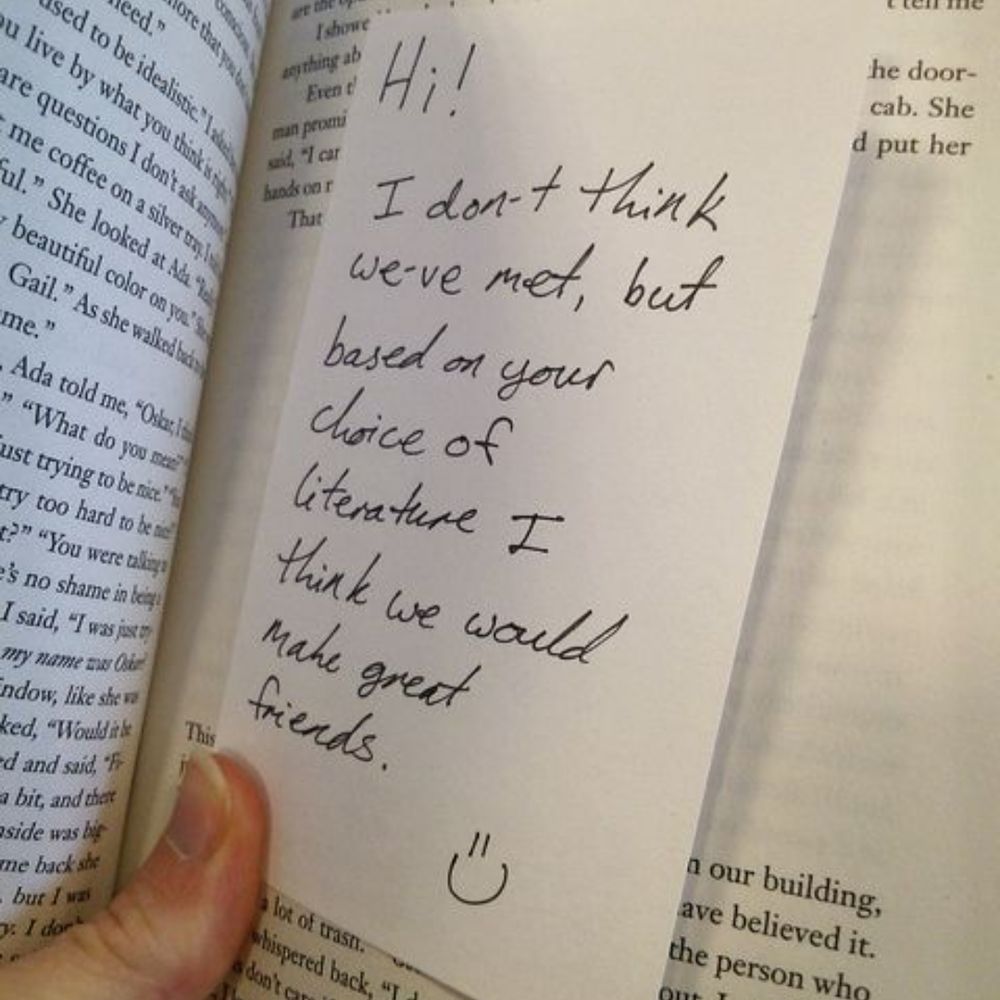 more that you do
conscious
need."
used to be idealistic." I asked
ou live by what you think is right."
are questions I don't ask anymore
me coffee on a silver tray. I
ful." She looked at Ada.
beautiful color on you."
Gail." As she walked back
me."
Ada told me, "Oskar, I
" "What do you mean?"
ust trying to be nice."
try too hard to be
t?" "You were talking
e's no shame in being
I said, "I was just try-
my name was Oskar
ndow, like she was
ked, "Would it be
ed and said, "Fi-
a bit, and there
nside was big-
me back she
, but I was
y. I don't
are the
I showe
anything ab
Even t
man promi
said, "I car
hands on r
That
This
Hi!
I don-t think
we-ve met, but
based on your
choice of
literature I
think we would
make great
friends.
t tell me
he door-
cab. She
d put her
n our building,
ave believed it.
the person who
out. I
a lot of trash.
whispered back, "I d
don't car